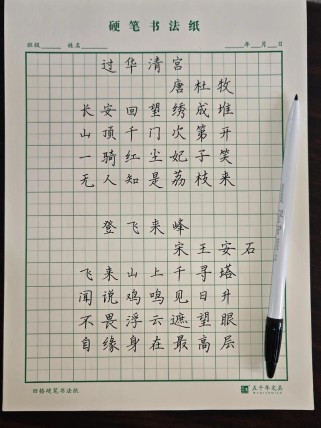 硬笔书法纸
班级 姓名 年 月 日
过华清宫
唐 杜牧
长安回望绣成堆
山顶千门次第开
一骑红尘妃子笑
无人知是荔枝来
登飞来峰
宋 王安石
飞来山上千寻塔
闻说鸡鸣见日升
不畏浮云遮望眼
自缘身在最高层
田格硬笔书法纸
五千年文具